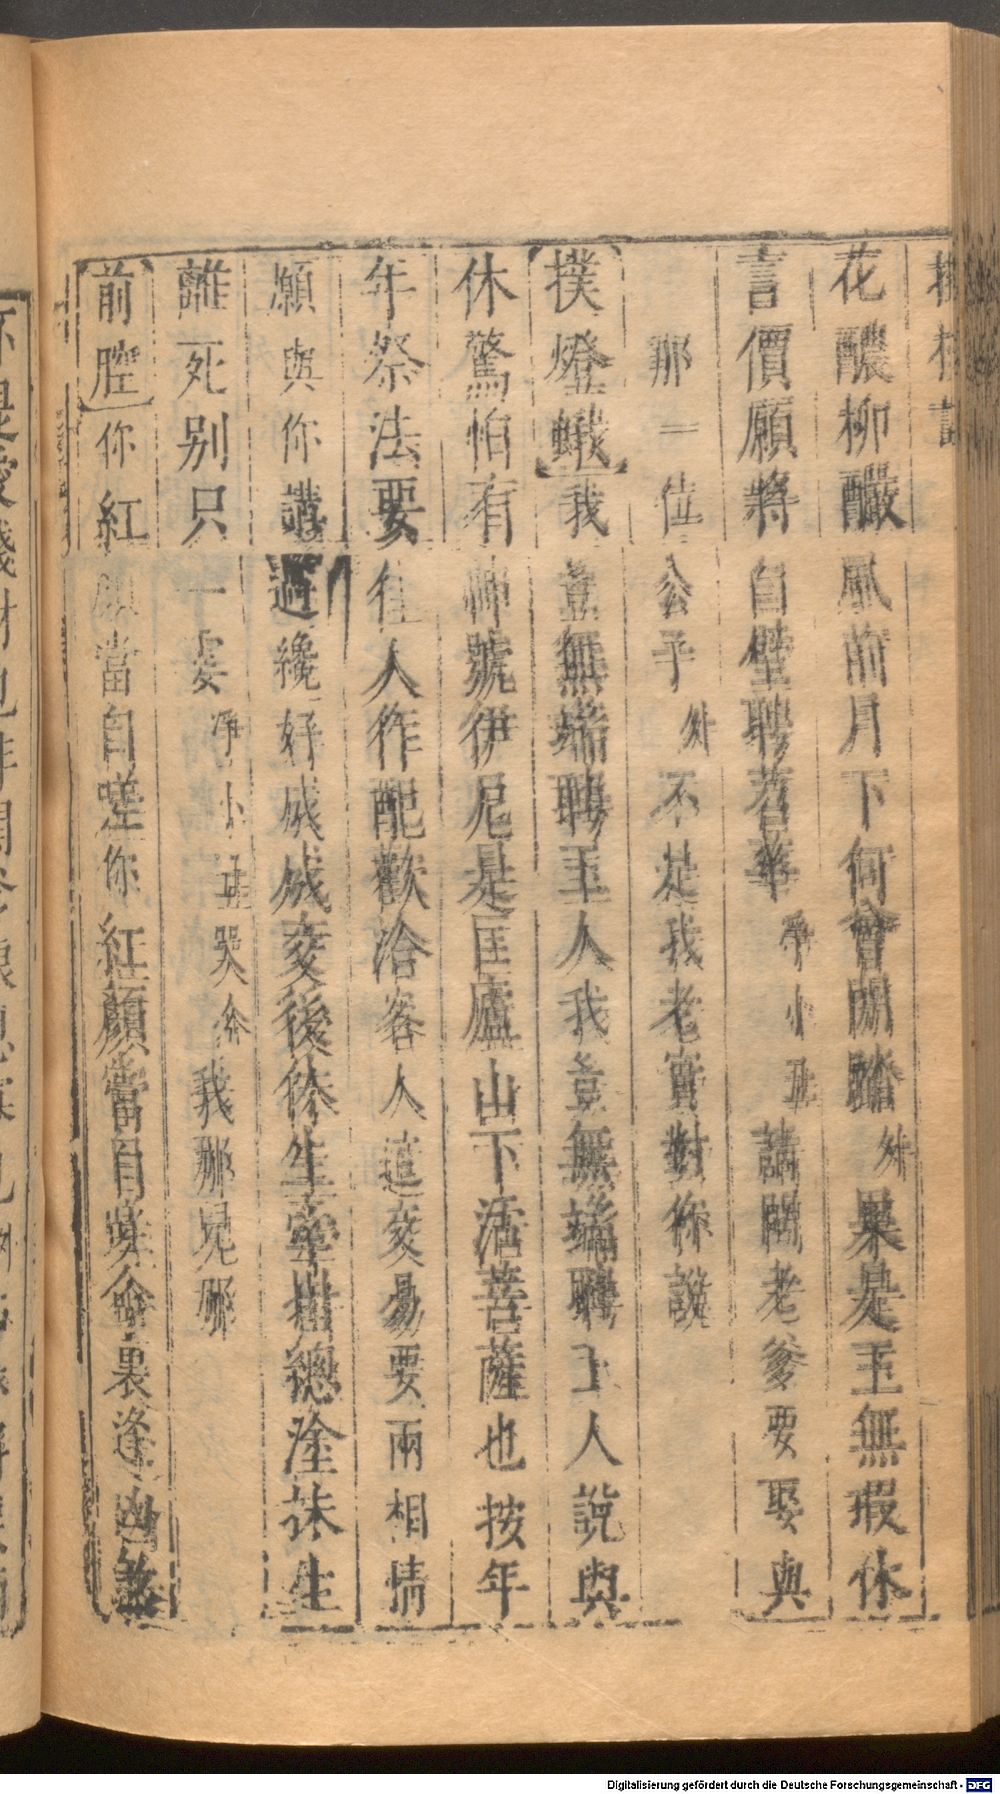 花醲柳釅風前月下何曾閒踏外果是玉無瑕休
言價願將白璧聘苕華淨小丑請問老爹要娶與
那一位公子外不是我老實對你說
撲燈蛾我豈無端聘玉人我豈無端聘玉人說與
休驚怕有神號伊尼是匡廬山下活菩薩也按年
年祭法要佳人作配歡洽客人這交易要兩相情
願與你講過纔好成成交後休生牽總塗抹生
離死別只一處淨小丑哭介我那兒那
前腔你紅顏當自嗟你紅顏當自嗟命裏逢凶
Digitalisierung gefördert durch die Deutsche Forschungsgemeinschaft - DFG